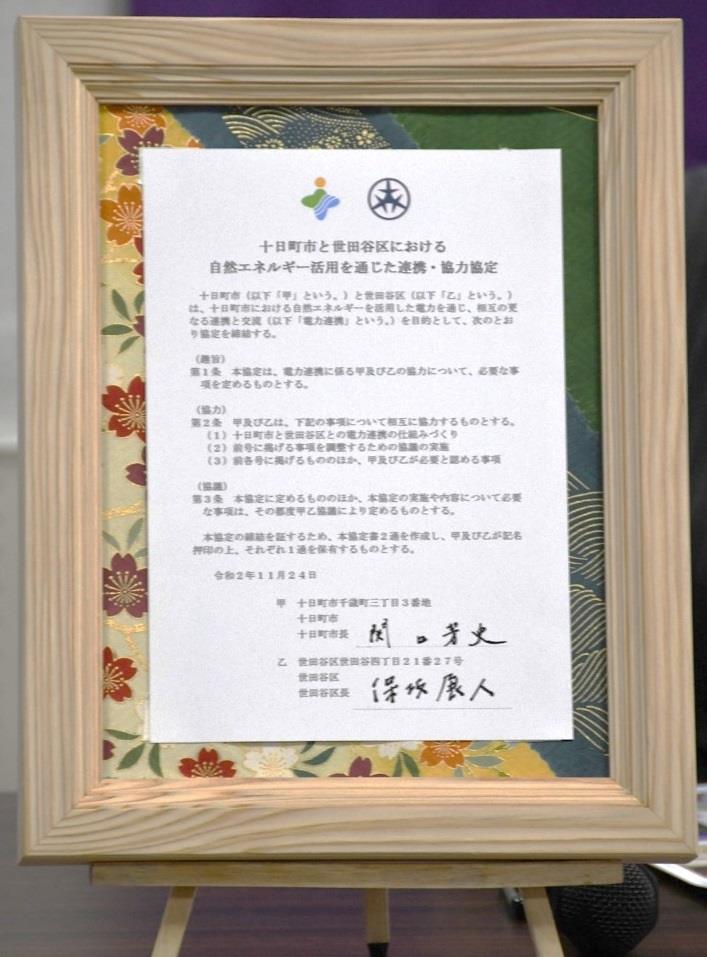 十日町市と世田谷区における
自然エネルギー活用を通じた連携・協力協定
十日町市（以下「甲」という。）と世田谷区（以下「乙」という。）
は、十日町市における自然エネルギーを活用した電力を通じ、相互の更
なる連携と交流（以下「電力連携」という。）を目的として、次のとお
り協定を締結する。
（趣旨）
第１条　本協定は、電力連携に係る甲及び乙の協力について、必要な事
項を定めるものとする。
（協力）
第２条　甲及び乙は、下記の事項について相互に協力するものとする。
（１）十日町市と世田谷区との電力連携の仕組みづくり
（２）前号に掲げる事項を調整するための協議の実施
（３）前各号に掲げるもののほか、甲及び乙が必要と認める事項
（協議）
第３条　本協定に定めるもののほか、本協定の実施や内容について必要
な事項は、その都度甲乙協議により定めるものとする。
本協定の締結を証するため、本協定書２通を作成し、甲及び乙が記名
押印の上、それぞれ１通を保有するものとする。
令和２年１１月２４日
甲　十日町市千歳町三丁目３番地
十日町市
十日町市長　関口芳史
乙　世田谷区世田谷四丁目２１番２７号
世田谷区
世田谷区長　保坂展人